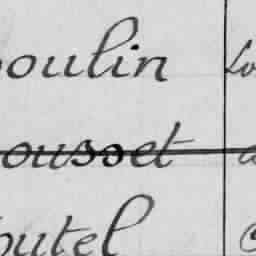 oulin Lo
ousset
utel